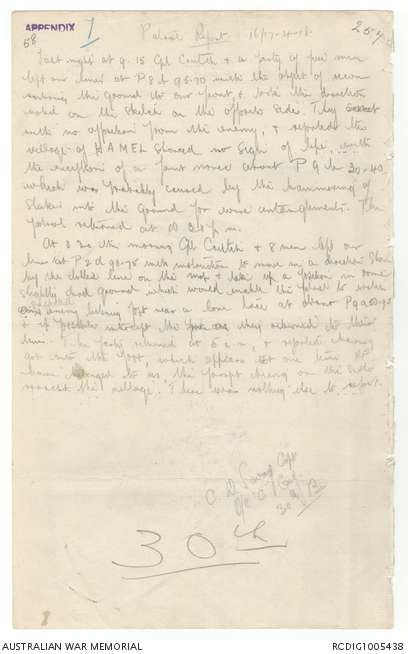 APPENDIX
58 1 Patrol Report 16/17-4-18 254
Last night at 9.15 Cpl Coutch & a party of five men
left our lines at P8d 95.70 with the object of recon
noitring the ground to our front & took the direction
marked on the sketch on the opposite side. They met
with no opposition from the enemy, & reported the
village of HAMEL showed no sign of life, with
the exception of a faint noise around P9b 30-40,
which was probably caused by the hammering of
stakes into the ground for wire entanglements. The
patrol returned at 10.30 p.m.
At 3.30 this morning Cpl Coutch & 8 men left our
line at P2d 90-95 with instructions to move in a direction shown
by the dotted line on the map & take up a position on some
slightly high ground which would enable the patrol to watch
enemy listening post near a lone tree at about P9a
& if possible intercept the as they returned to their
lines. The party returned at 5 a.m. & reported having
got into the post, which appears
nearest the village. There was nothing else to report.
C Capt
O/C "C" Coy
30th Bn
30th
AUSTRALIAN WAR MEMORIAL
RCDIG1005438